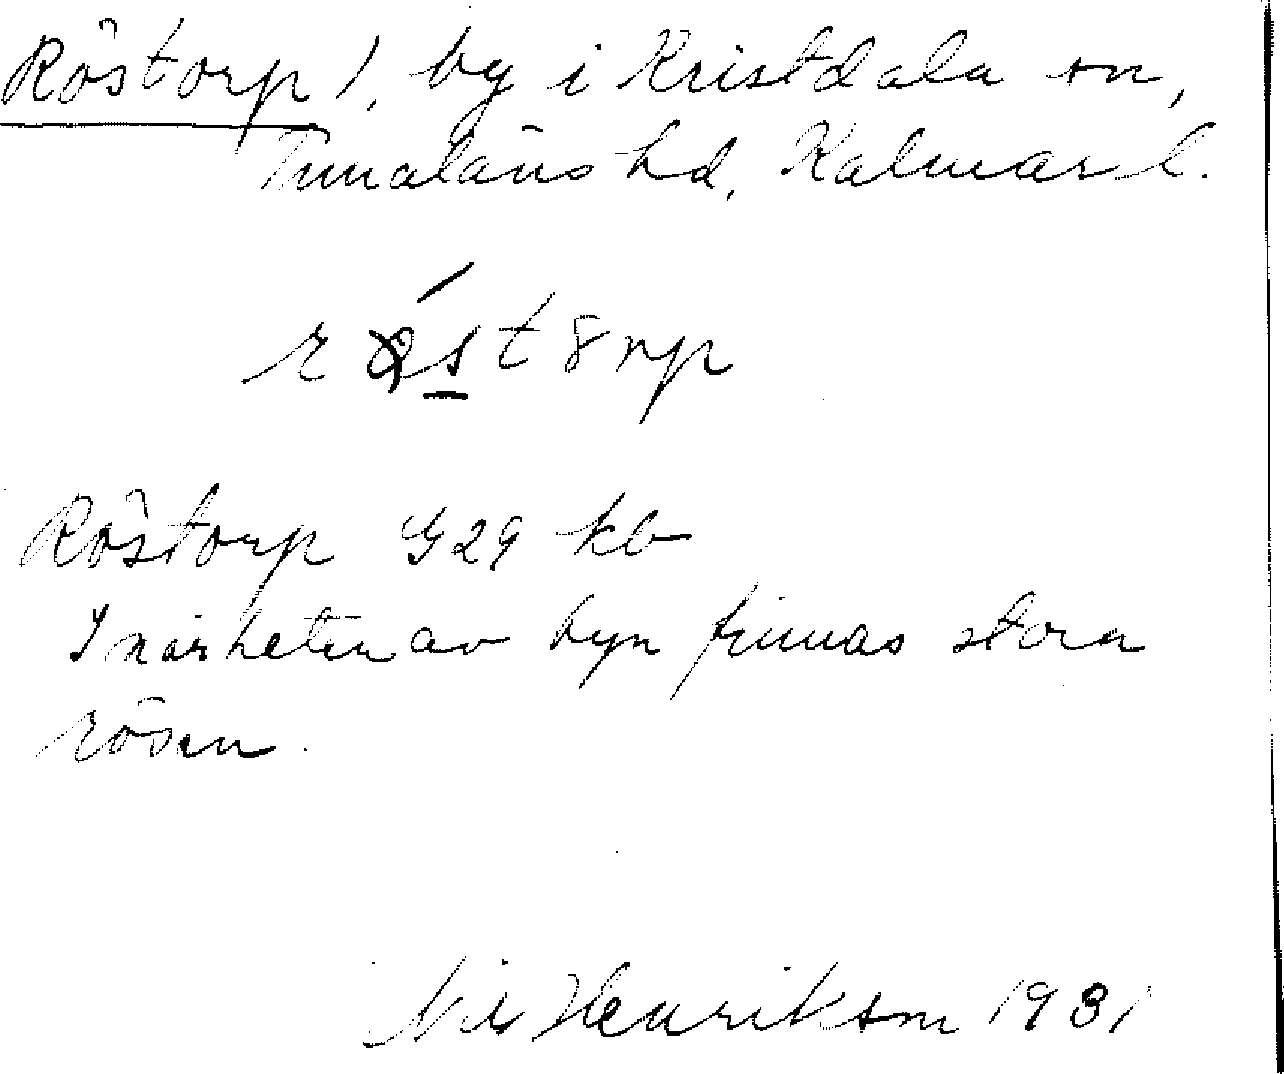 Röstorp 1, by i Kristdala sn,
Tunaläns hd, Kalmar l.
Röstorp G29 kb
I närheten av byn finnas stora
rösen.
Nils Henrikson 1931